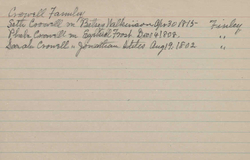 Crowell Family
Seth Crowell m Betsey Wilkinson Apr 30 1815- Finley
Phebe Crowell m Frost Dec 14 1808. "
Sarah Crowell - Jonathan Stiles Aug 19, 1802 "